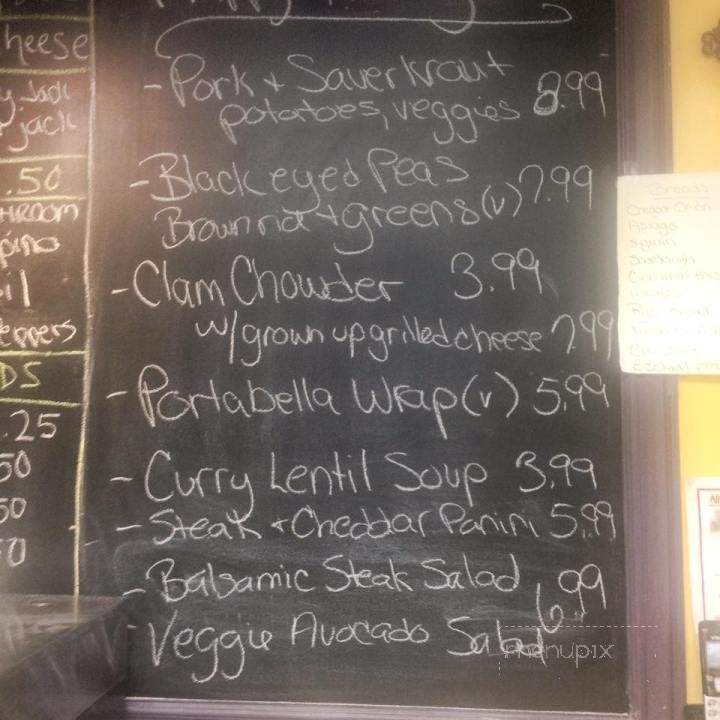 - Pork + Sauerkraut 8.99
potatoes, veggies
- Black eyed Peas 7.99
Brown rice + greens (v)
- Clam Chowder 3.99
w/ grown up grilled cheese 7.99
- Portabella Wrap (v) 5.99
- Curry Lentil Soup 3.99
- Steak + Cheddar Panini 5.99
- Balsamic Steak Salad 6.99
- Veggie Avocado Salad
heese
jack
.50
HROOM
eppers
DS
.25
50
50
Breads
menupix